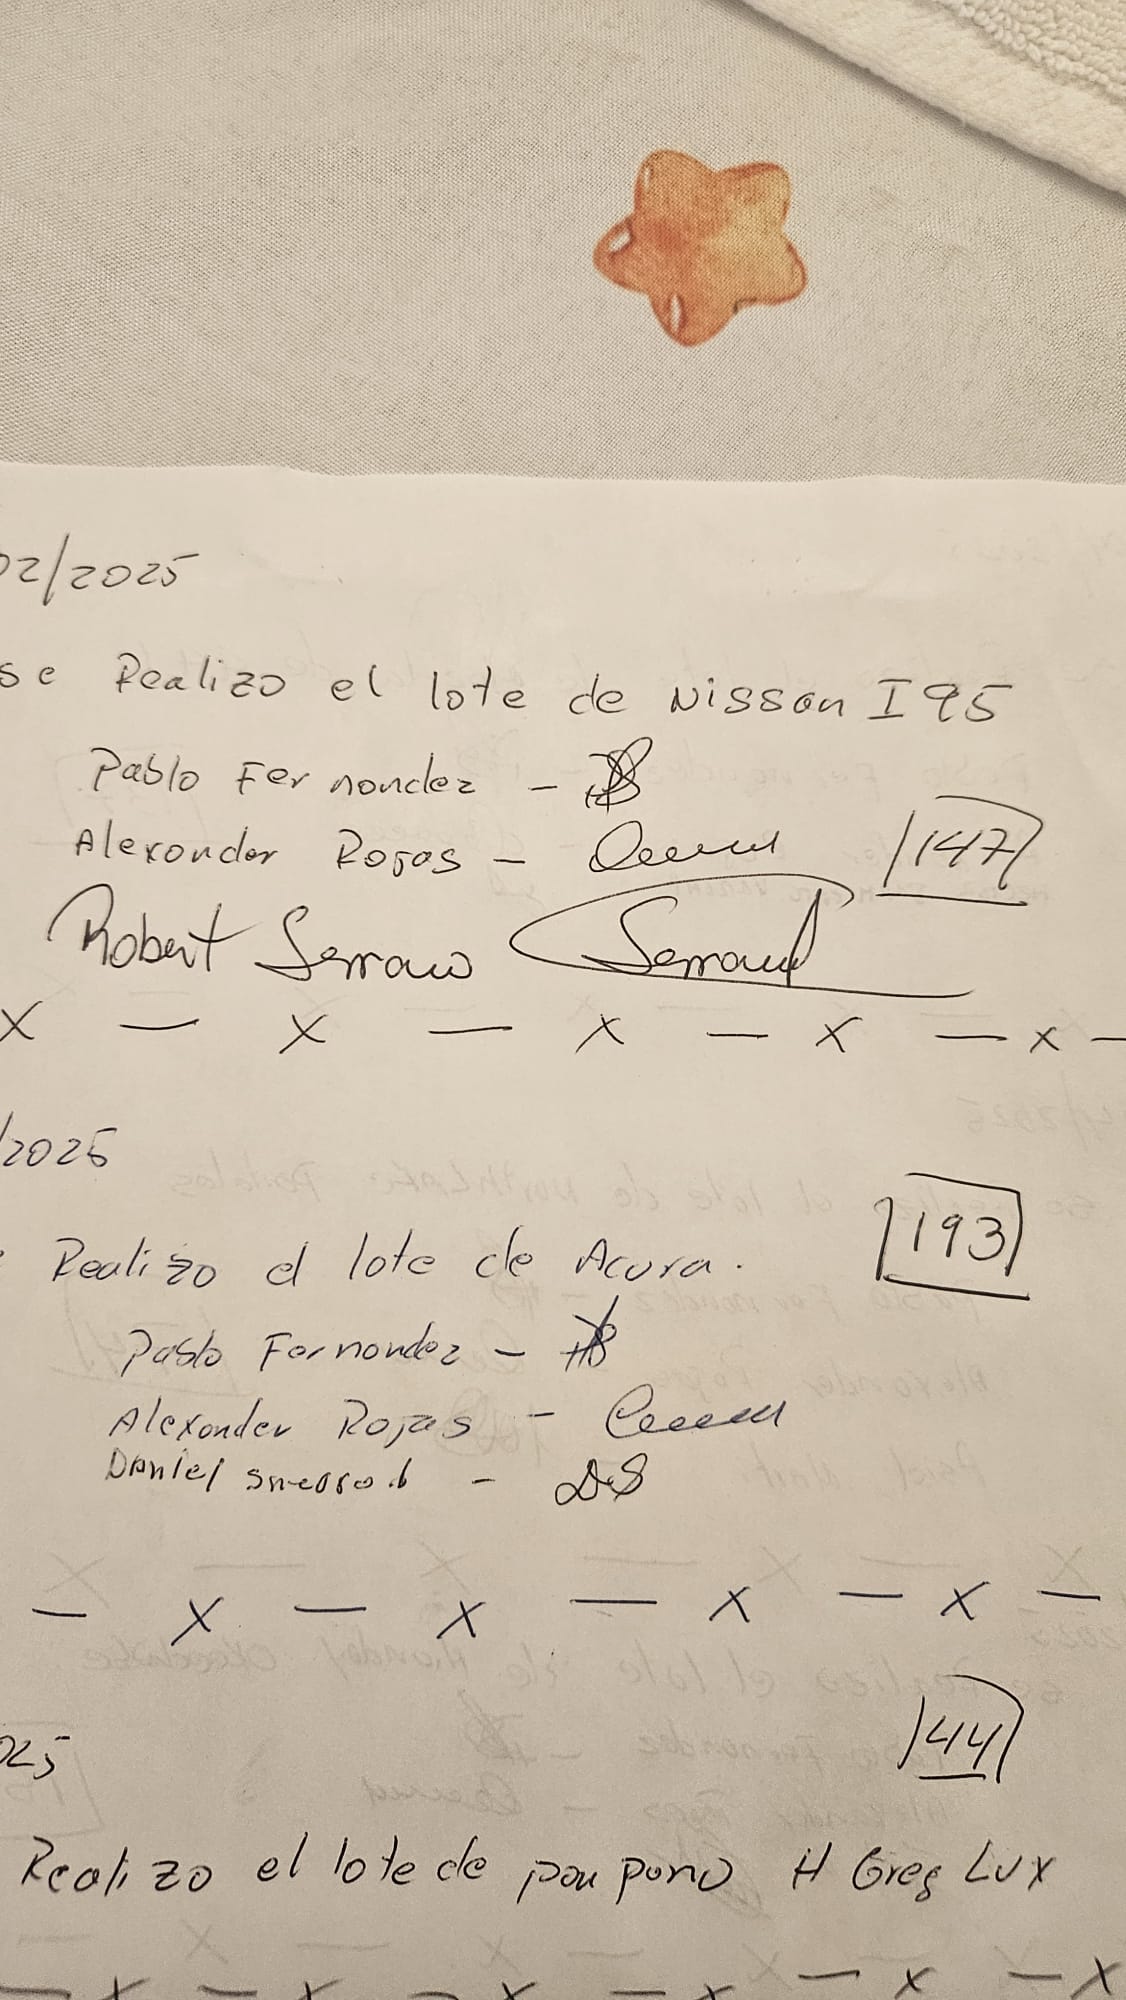 02/2025
se Realizo el lote de Nissan I95
Pablo Fernandez -
Alexander Rojas -
147
Robert Serrano Serrano
X — X — X — X — X —
/2025
193
Realizo el lote de Acura.
Pablo Fernandez -
Alexander Rojas -
Daniel - DS
— X — X — X — X —
025
44
Realizo el lote de pompano H Greg Lux
— X — X — X — X — X — X